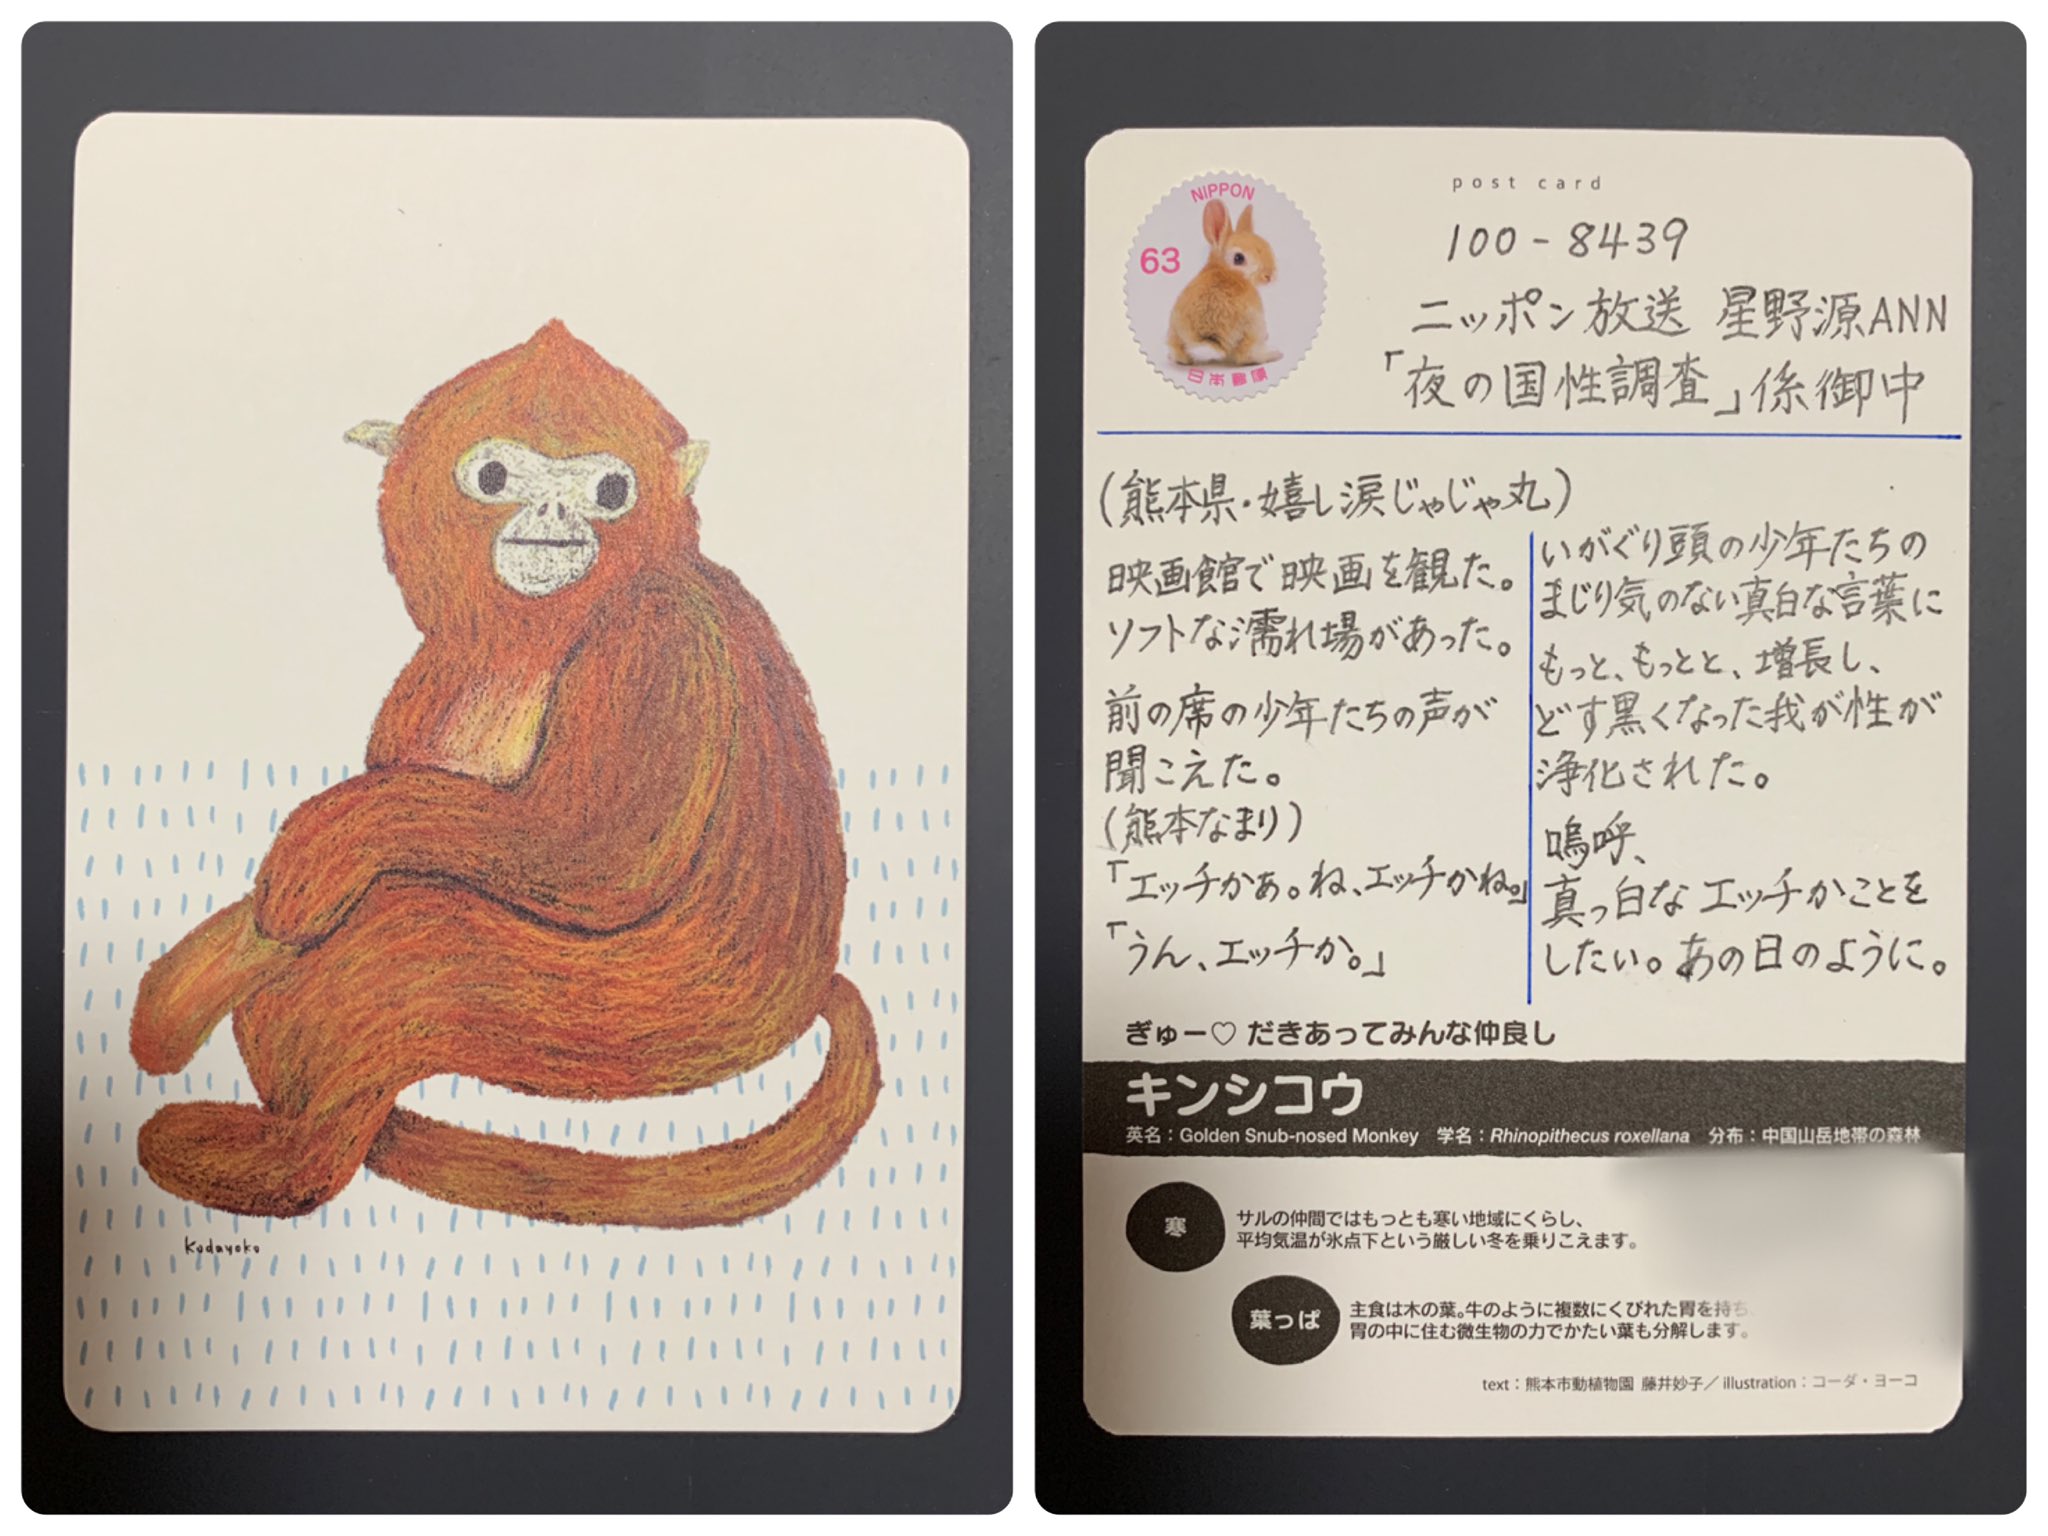 Kodayoko
NIPPON
63
日本郵便
post card
100-8439
ニッポン放送 星野源ANN
「夜の国性調査」係御中
(熊本県・嬉し涙じゃじゃ丸)
映画館で映画を観た。
ソフトな濡れ場があった。
前の席の少年たちの声が
聞こえた。
(熊本なまり)
「エッチかぁ。ね、エッチかね。」
「うん、エッチか。」
いがぐり頭の少年たちの
まじり気のない真白な言葉に
もっと、もっとと、増長し、
どす黒くなった我が性が
浄化された。
嗚呼、
真っ白なエッチかことを
したい。あの日のように。
ぎゅー♡だきあってみんな仲良し
キンシコウ
英名：Golden Snub-nosed Monkey 学名：Rhinopithecus roxellana 分布：中国山岳地帯の森林
寒
サルの仲間ではもっとも寒い地域にくらし、
平均気温が氷点下という厳しい冬を乗りこえます。
葉っぱ
主食は木の葉。牛のように複数にくびれた胃を持ち、
胃の中に住む微生物の力でかたい葉も分解します。
text：熊本市動植物園 藤井妙子／illustration：コーダ・ヨーコ